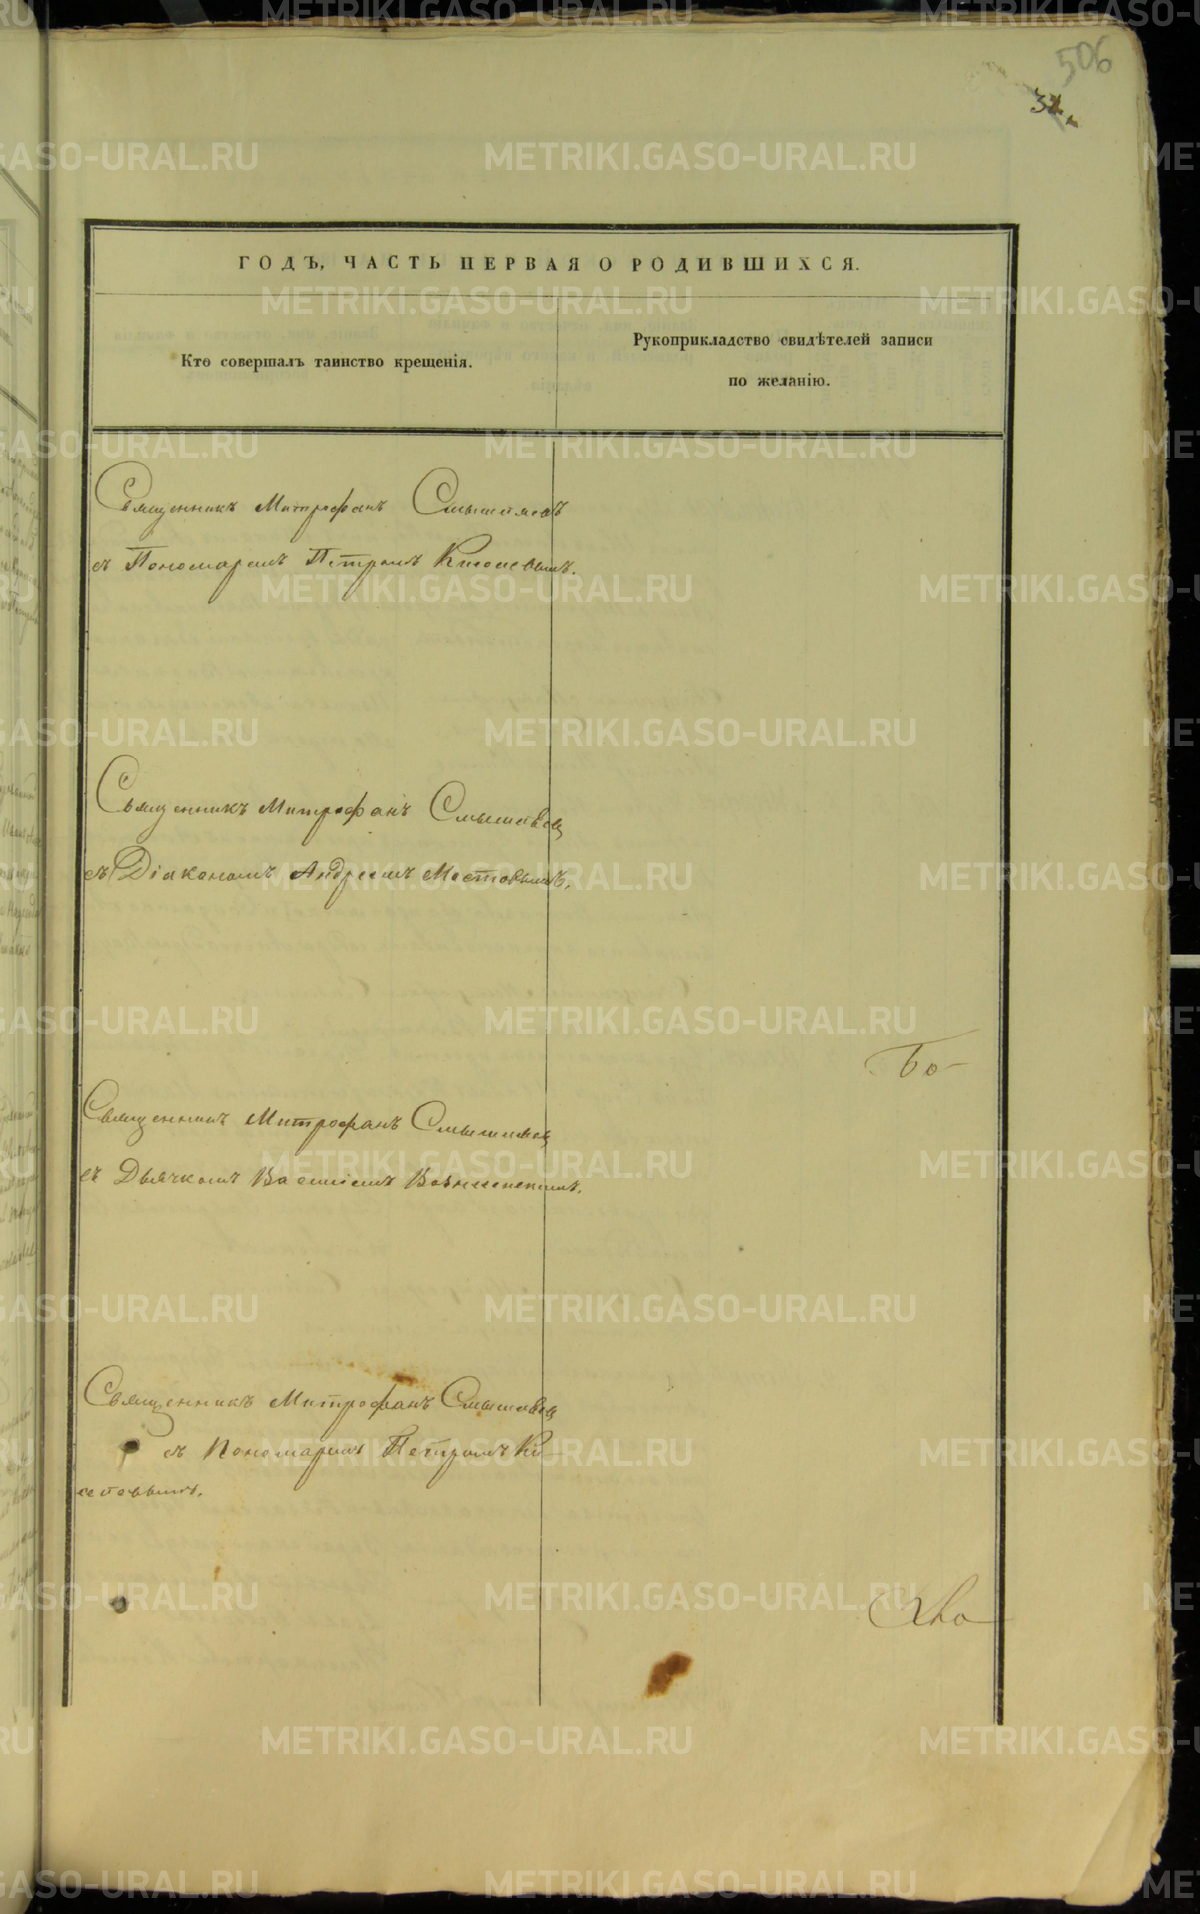 506
ГОДЪ, ЧАСТЬ ПЕРВАЯ О РОДИВШИХСЯ.
Кто совершалъ таинство крещенія.
Рукоприкладство свидѣтелей записи
по желанію.
Священникъ Митрофанъ Смышляевъ
съ Пономаремъ Петромъ Киселевымъ.
Священникъ Митрофанъ Смышляевъ
съ Діакономъ Андреемъ Мостовымъ.
Бо-
Священникъ Митрофанъ Смышляевъ
съ Дьячкомъ Василіемъ Вознесенскимъ.
Священникъ Митрофанъ Смышляевъ
съ Пономаремъ Петромъ Ки-
селевымъ.
METRIKI.GASO-URAL.RU